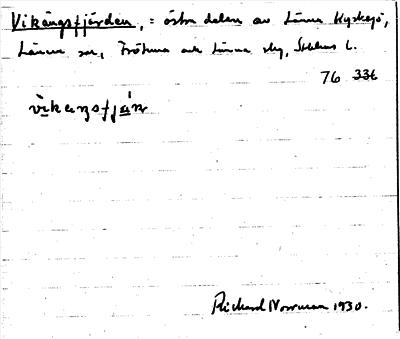 Vikängsfjärden, = östra delen av Länna Kyrksjö,
Länna sn, Frötuna och Länna skg, Sthlms l.
76 336
vikeŋsfjän
Richard Norrman 1930.